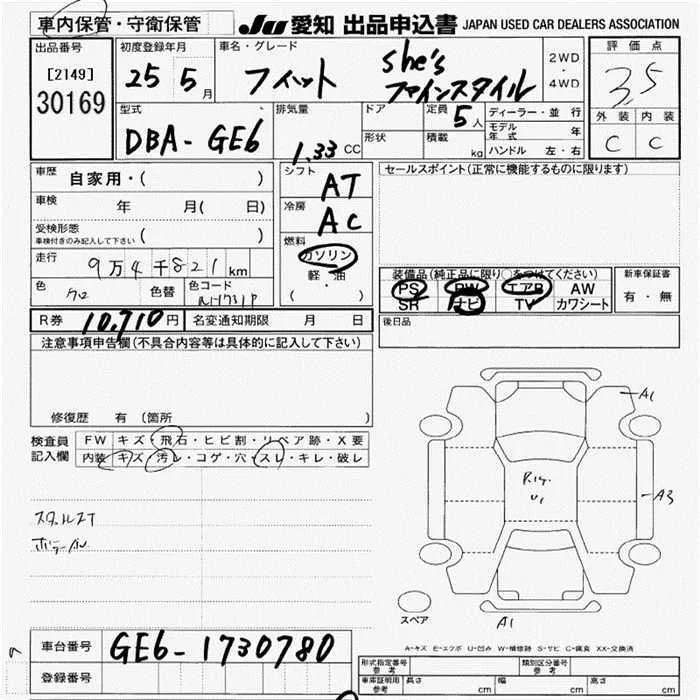 車内保管・守衛保管
JU 愛知 出品申込書 JAPAN USED CAR DEALERS ASSOCIATION
出品番号 初度登録年月 車名・グレード 評価点
[2149] 25 5月 フィット she's ファインスタイル 2WD・4WD 3.5
30169
型式 排気量 ドア 定員 5人 ディーラー・並行 外装 内装
DBA-GE6 1.33 CC 形状 積載 kg モデル年式 年 C C
ハンドル 左・右
車歴 自家用・( ) シフト AT セールスポイント(正常に機能するものに限ります)
車検 年 月( 日) 冷房 AC
受検形態 車検付きのみ記入して下さい ( ) 燃料 ガソリン
走行 9万4千821km 軽・油 装備品(純正品に限り○をつけてください) 新車保証書
色 色替 色コード ( ) PS PW エアB AW 有・無
SR ナビ TV カワシート
R券 10,710円 名変通知期限 月 日 後日品
注意事項申告欄(不具合内容等は具体的に記入して下さい)
修復歴 有 〔箇所
検査員記入欄 FW キズ・飛石・ヒビ割・リペア跡・X要
内装 キズ・汚レ・コゲ・穴・スレ・キレ・破レ
A1
U1
A3
スペア
A1
A-キズ E-エクボ U-凹み W-補修跡 S-サビ C-腐食 XX-交換済
車台番号 GE6-1730780
登録番号
形式指定番号 参考 類別区分番号 参考
車庫証明用 参考 長さ cm 幅 cm 高さ cm